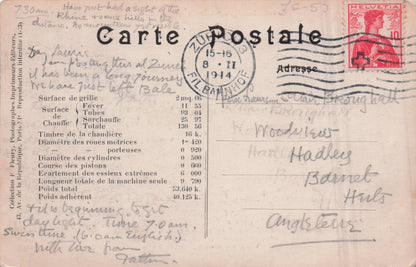 7.30am. Have just had a sight of the
Rhine & some hills in the
distance. No mountains yet
Carte Postale
Adresse
HELVETIA
10
ZÜRICH
15-16
8 · II
1914
FIL. BAHNHOF
Dear Laurie
I am posting this at Zurich
it has been a long journey
We have just left Bale
Surface de grille 2 mq. 06
Surface de Chauffe
Foyer 11 55
Tubes 93 04
Surchauffe 25 97
Totale 130 56
Timbre de la chaudière 16 k.
Diamètre des roues motrices 1m420
— porteuses 0 920
Diamètre des cylindres 0 500
Course des pistons 0 660
Ecartement des essieux extrêmes 6 000
Longueur totale de la machine 9 790
Poids total 53.640 k.
Poids adhérent 40.125 k.
& it is beginning to get
day light. Time 7.0 am.
Swiss time (6.0 am English)
With love from
Father.
Collection F. Fleury, Photographies-Imprimeur-Editeur,
43, Av. de la République, Paris. (Reproduction interdite)
Broughall
Woodview
Hadley
Barnet
Herts
Angleterre